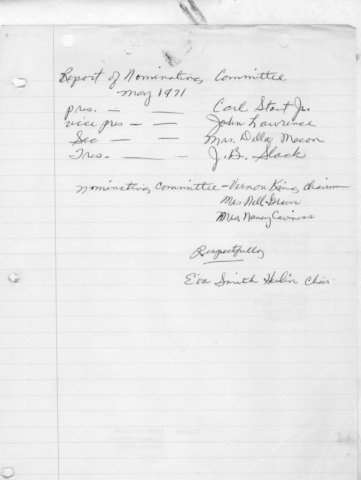 Report of Nominating Committee
May 1971
pres. — — Carl Stout Jr.
vice pres — — John Lawrence
Sec — — Mrs. Della Macon
Tres. — — J.B. Slack
Nominating Committee - Vernon King, Chairman
Mrs Nell
Mrs. Nancy Caviness
Respectfully
Eva Smith Chair.